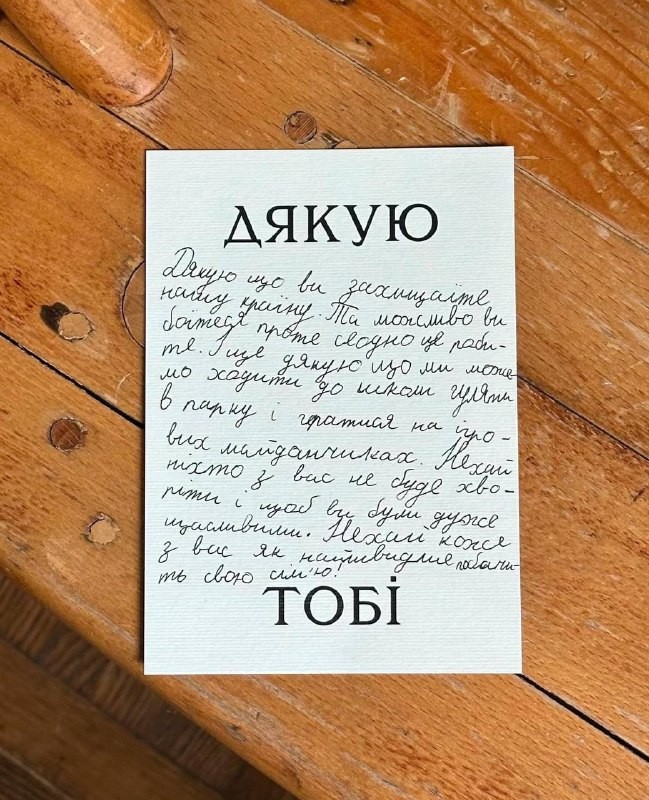 ДЯКУЮ
Дякую що ви захищаїте
нашу країну. Та можливо ви
боїтеся проте всодно це роби-
те. І ще дякую що ми може
мо ходити до школи гуляти
в парку і гратися на ігро-
вих майданчиках. Нехай
ніхто з вас не буде хво-
ріти і щоб ви були дуже
щасливими. Нехай коже
з вас як найшвидше побачи-
ть свою сім'ю!
ТОБІ